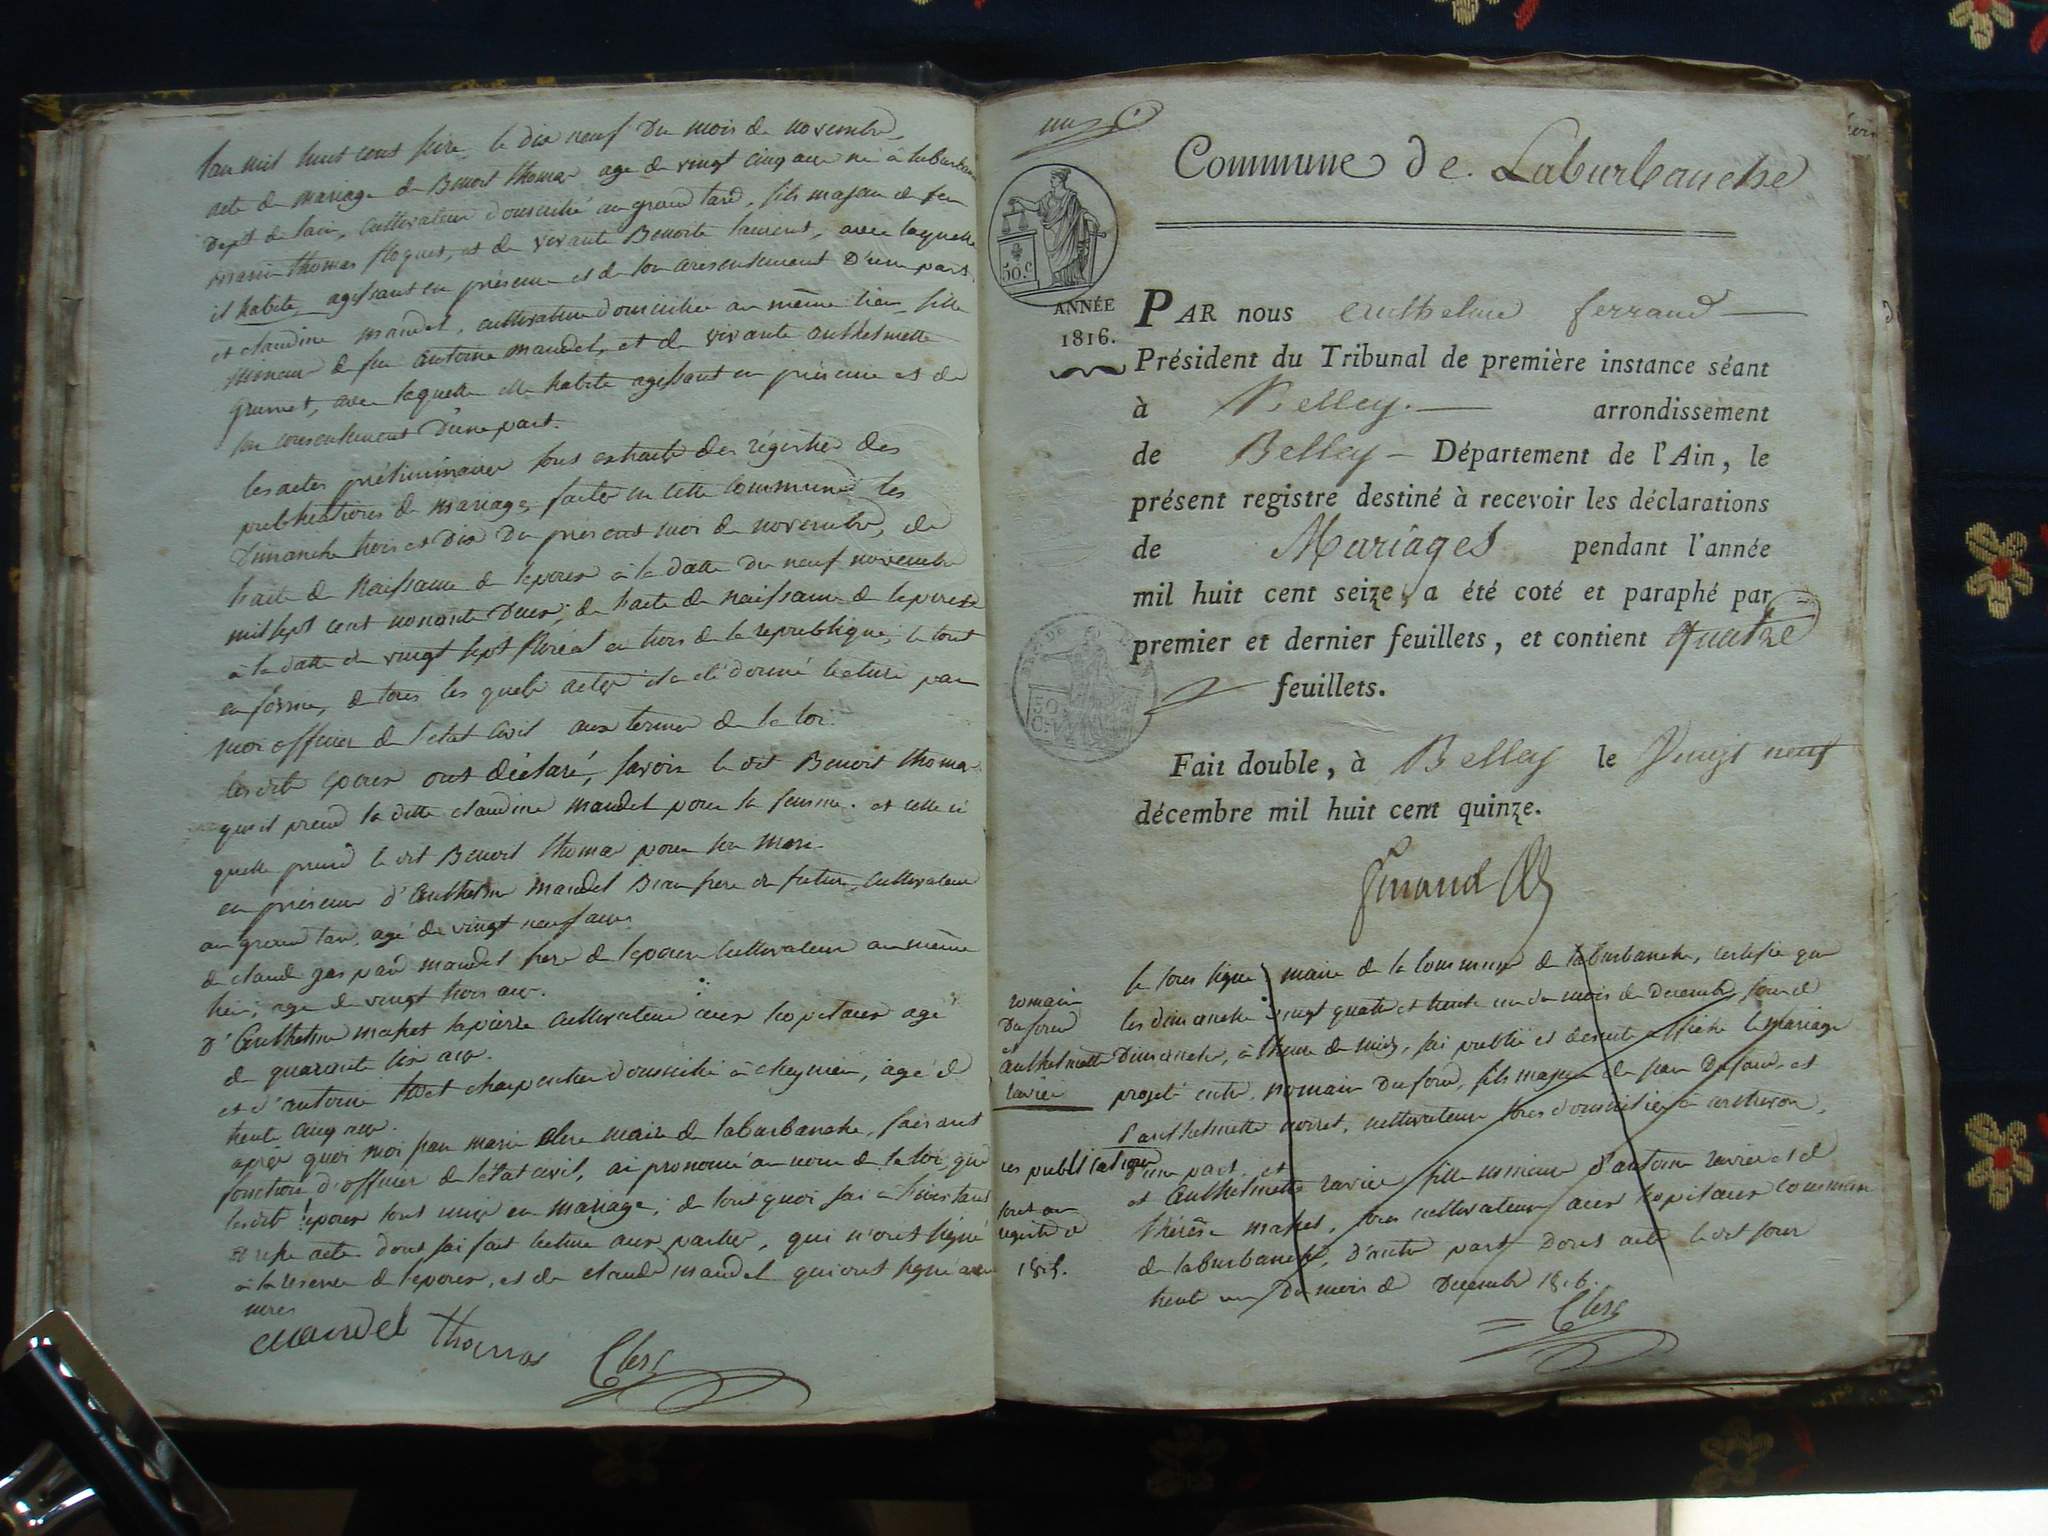 lan mil huit cent seize le dix neuf Du mois de novembre
acte de mariage de Benoit thomas age de vingt cinq ans né à laburbanche
Dept de lain, cultivateur domicilié au grand tard, fils majeur de feu
marin thomas floquet, et de vivante Benoite laurent, avec laquelle
il habite agissant en présence et de son consentement D'une part
et claudine mandel, cultivatrice domiciliée au même lieu, fille
mineure de feu antoine mandel, et de vivante anthelmette
grumet, avec laquelle elle habite agissant en présence et de
son consentement D'une part.
les actes préliminaires sont extraits des régistres des
publications de mariage faites en cette commune les
Dimanche trois et dix Du présent moi de novembre, de
lacte de Naissance de lepoux à la datte du neuf novembre
mil sept cent nonante Deux, de lacte de naissance de lepouse
à la datte de vingt sept floréal an trois de la republique, le tout
en forme, de tous les quels actes il a été donné lecture par
moi officier de l'etat civil aux termes de la loi.
lesdits epoux ont déclaré, savoir le dit Benoit thomas
qu'il prend la ditte claudine mandel pour sa femme. et celle ci
quelle prend le dit Benoit thomas pour son mari.
en présence d'Anthelme mandel Beau frere du futur, cultivateur
au grand tard, agé de vingt neuf ans
de claude gaspard mandel frere de lepouse cultivateur au même
lieu, age de vingt trois ans.
D'Anthelme cultivateur aux hopitaux agé
de quarante six ans.
et d'antoine charpentier domicilié à cheynieu, agé de
trente cinq ans.
après quoi moi jean marie clerc maire de laburbanche, faisant
fonction d'officier de l'état civil, ai prononcé au nom de la loi, que
lesdits epoux sont unis en mariage, de tout quoi jai à l'instant
acte dont jai fait lecture aux parties, qui n'ont signé
à la réserve de l'epoux, et de claude mandel qui ont signé avec
nous
Mandel Thomas Clerc
Commune de Laburbanche
50.c
ANNÉE
1816.
PAR nous Anthelme ferrand
Président du Tribunal de première instance séant
à Belley. arrondissement
de Belley Département de l'Ain, le
présent registre destiné à recevoir les déclarations
de Mariages pendant l'année
mil huit cent seize, a été coté et paraphé par
premier et dernier feuillets, et contient quatre
feuillets.
Fait double, à Belley le Vingt neuf
décembre mil huit cent quinze.
ferrand
romain
Dufour
et
anthelmette
ravier
ces publications
sont au
registre de
1815.
le sous signé maire de la commune de laburbanche, certifie que
les dimanche vingt quatre et trente un du mois de Decembre jour de
Dimanche, à l'heure de midi, jai publié et ensuite affiché le mariage
projeté entre romain Dufour, fils majeur de jean Dufour et
d'anthelmette cultivateurs tous domiciliés à
d'une part, et
et Anthelmette ravier fille mineure d'antoine ravier et de
thérèse tous cultivateurs aux hopitaux commune
de laburbanche, d'autre part Dont acte le dit jour
trente un Du mois de Decembre 1816.
Clerc